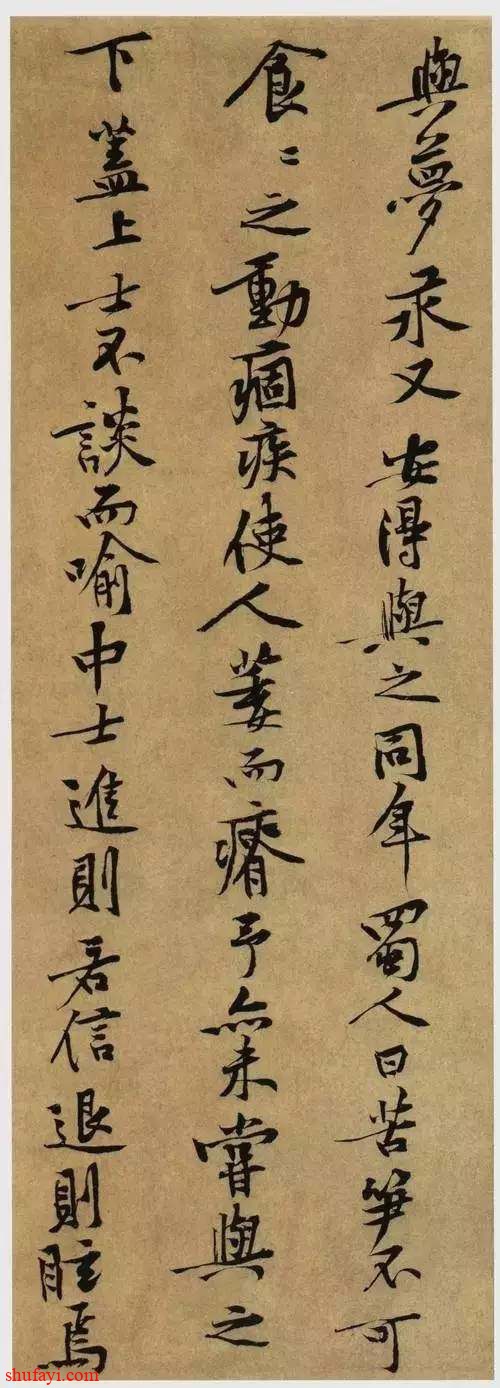 與夢汞又安得與之同年蜀人曰苦筍不可
食〻之動痼疾使人萎而瘠予亦未嘗與之
下蓋上士不談而喻中士進則若信退則眩焉
shufayi.com